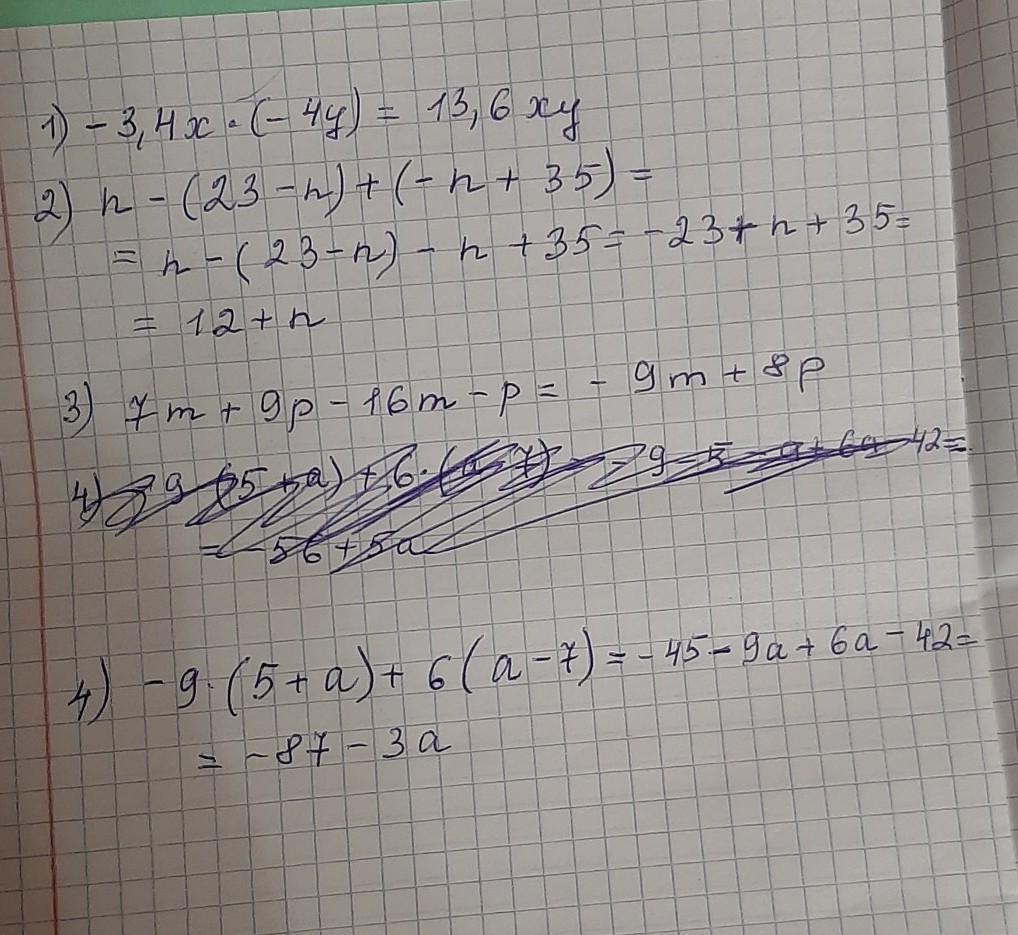 1) -3,4x·(-4y) = 13,6xy
2) n-(23-n)+(-n+35)=
= n-(23-n)-n+35=-23+n+35=
= 12+n
3) 7m+9p-16m-p=-9m+8p
4) -9·(5+a)+6(a-7)=-45-9a+6a-42=
= -87-3a